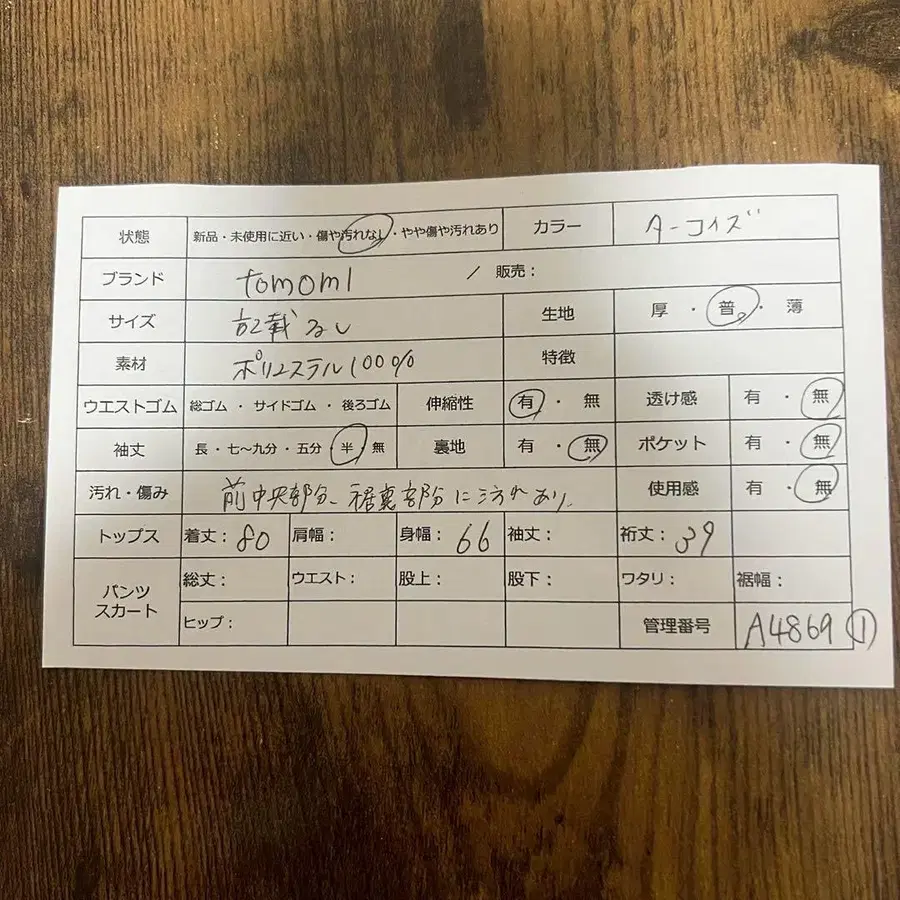 状態 新品・未使用に近い・傷や汚れなし・やや傷や汚れあり カラー ターコイズ
ブランド tomomi / 販売：
サイズ 記載なし 生地 厚・普・薄
素材 ポリエステル100% 特徴
ウエストゴム 総ゴム・サイドゴム・後ろゴム 伸縮性 有・無 透け感 有・無
袖丈 長・七〜九分・五分・半・無 裏地 有・無 ポケット 有・無
汚れ・傷み 前中央部分、裾裏部分に汚れあり。 使用感 有・無
トップス 着丈：80 肩幅： 身幅：66 袖丈： 裄丈：39
パンツ スカート 総丈： ウエスト： 股上： 股下： ワタリ： 裾幅：
ヒップ： 管理番号 A4869①